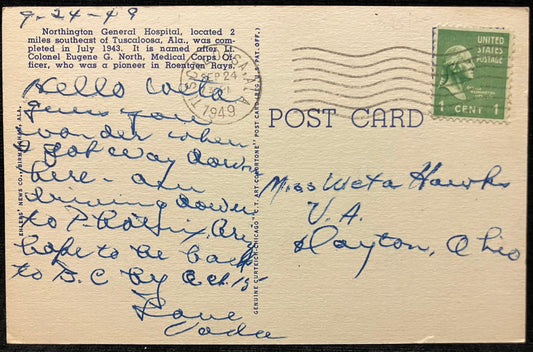 9-24-49
Northington General Hospital, located 2
miles southeast of Tuscaloosa, Ala., was com-
pleted in July 1943. It is named after Lt.
Colonel Eugene G. North, Medical Corps Of-
ficer, who was a pioneer in Roentgen Rays.
Hello
Guess you
wonder when
I got way down
here - am
driving down
to Phoenix, Ary
hope to be back
to D.C by Oct. 15-
Love
Vada
EHLERS' NEWS CO., BIRMINGHAM, ALA.
GENUINE CURTEICH-CHICAGO "C.T. ART-COLORTONE" POST CARD (REG. U.S. PAT. OFF.)
TUSCALOOSA, ALA.
SEP 24
1949
UNITED
STATES
POSTAGE
1 CENT 1
POST CARD
Miss Weta Hawks
V.A.
Dayton, Ohio